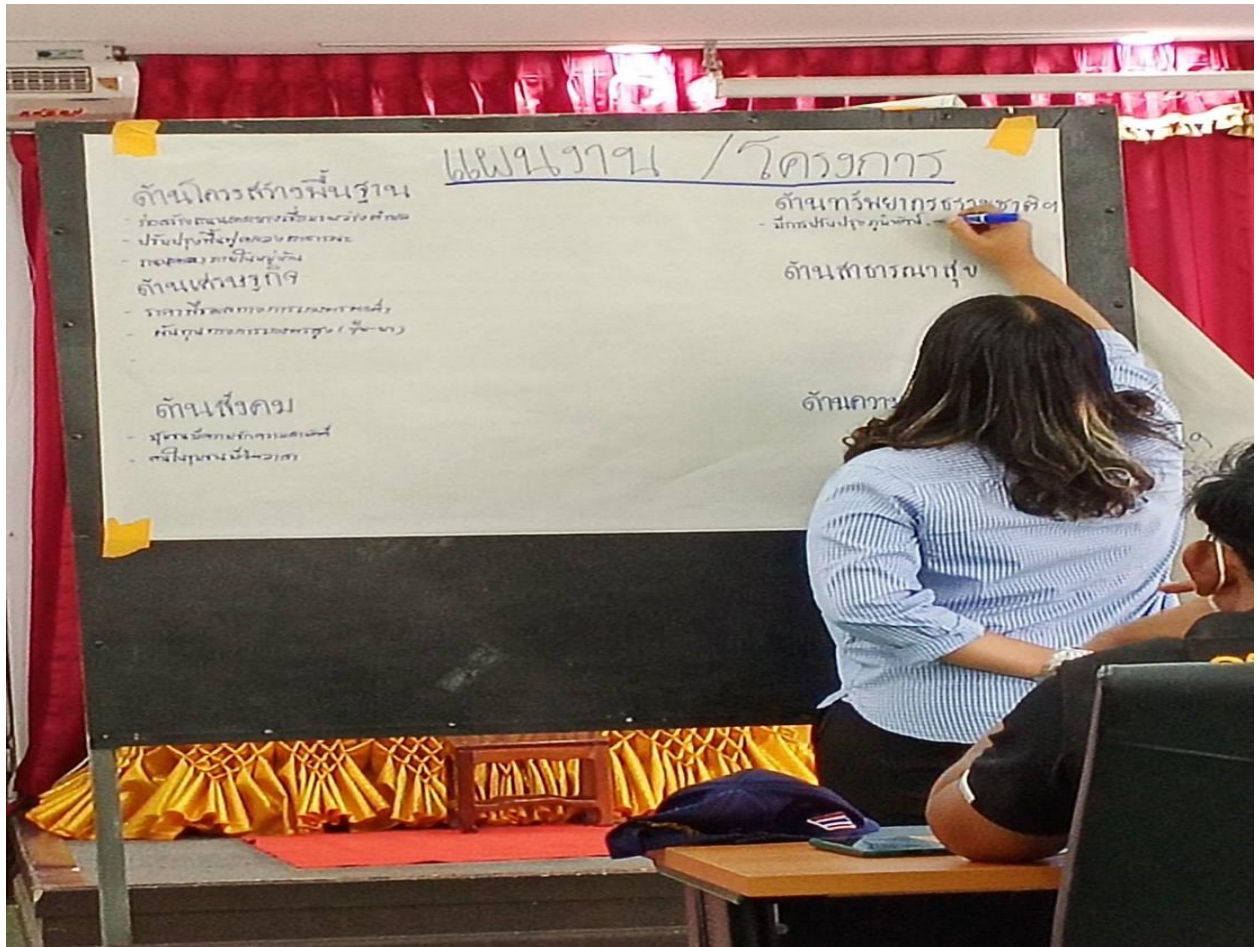 แผนงาน / โครงการ
ด้านโครงสร้างพื้นฐาน
- ก่อสร้างถนนลาดยางเชื่อมระหว่างตำบล
- ปรับปรุงฟื้นฟูคลองสาธารณะ
- ภายในหมู่บ้าน
ด้านเศรษฐกิจ
- ราคาพืชผลทางการเกษตรตกต่ำ
- ต้นทุนทางการเกษตรสูง (ปุ๋ย-ยา)
-
ด้านสังคม
- ชุมชนมีความรักความสามัคคี
- คนในชุมชนมีจิตอาสา
ด้านทรัพยากรธรรมชาติฯ
- มีการปรับปรุงภูมิทัศน์
ด้านสาธารณาสุข
ด้านความ